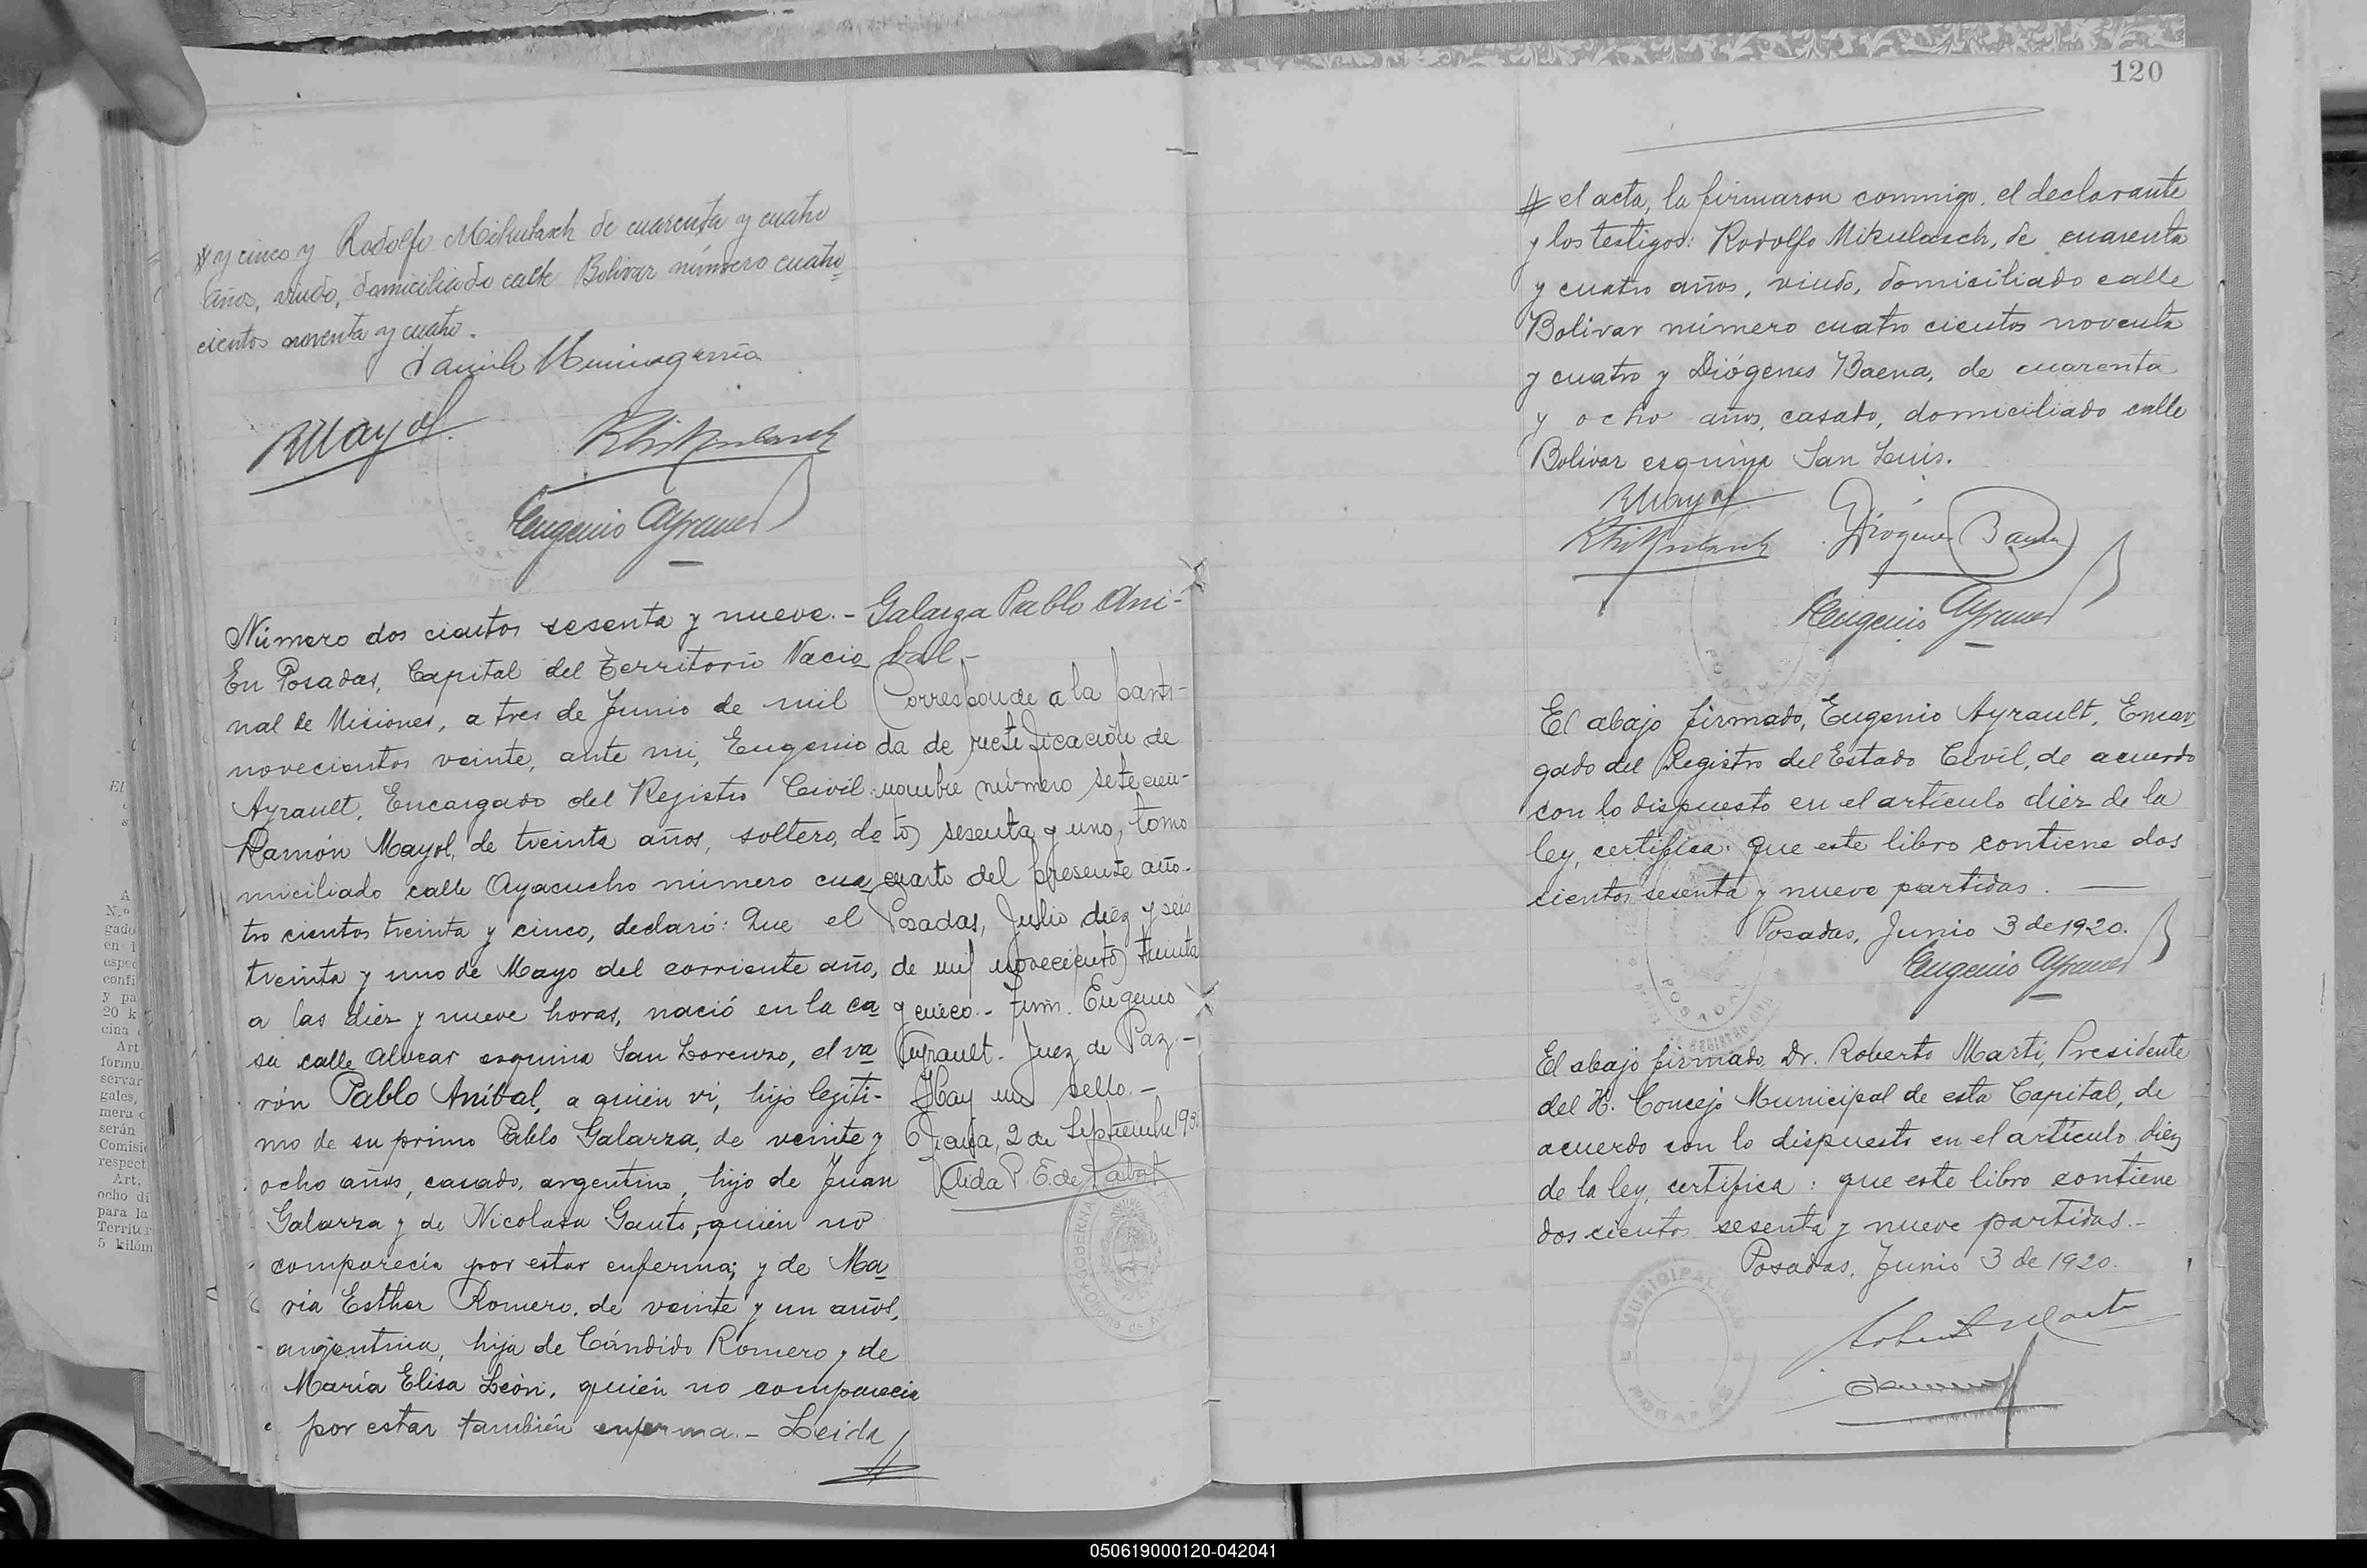 y cinco y Rodolfo Mikulasch de cuarenta y cuatro
años, viudo, domiciliado calle Bolivar número cuatro
cientos noventa y cuatro.
RMayol
Eugenio Ayrault
Número dos cientos sesenta y nueve.-
En Posadas, Capital del Territorio Nacio
nal de Misiones, a tres de Junio de mil
novecientos veinte, ante mi, Eugenio
Ayrault, Encargado del Registro Civil
Ramón Mayol, de treinta años, soltero, do
miciliado calle Ayacucho número cua
tro cientos treinta y cinco, declaró: Que el
treinta y uno de Mayo del corriente año,
a las diez y nueve horas, nació en la ca
sa calle Alvear esquina San Lorenzo, el va
rón Pablo Aníbal, a quien vi, hijo legíti-
mo de su primo Pablo Galarza, de veinte y
ocho años, casado, argentino, hijo de Juan
Galarza y de Nicolasa Gauto, quien no
comparecía por estar enferma; y de Ma
ría Esther Romero, de veinte y un años,
argentina, hija de Cándido Romero y de
María Elisa León, quién no comparecia
por estar también enferma.- Leida
Galarza Pablo Ani-
bal.-
Corresponde a la parti-
da de rectificación de
nombre número setecien-
tos sesenta y uno, tomo
cuarto del presente año.
Posadas, Julio diez y seis
de mil novecientos treinta
y cinco.- Firm. Eugenio
Ayrault. Juez de Paz.-
Hay un sello.-
2 de Septiembre 193
120
el acta, la firmaron conmigo, el declarante
y los testigos: Rodolfo Mikulasch, de cuarenta
y cuatro años, viudo, domiciliado calle
Bolivar número cuatro cientos noventa
y cuatro y Diógenes Baena, de cuarenta
y ocho años, casado, domiciliado calle
Bolivar esquina San Luis.
RMayol
Diógenes Baena
Eugenio Ayrault
El abajo firmado, Eugenio Ayrault, Encar
gado del Registro del Estado Civil, de acuerdo
con lo dispuesto en el artículo diez de la
ley, certifica: que este libro contiene dos
cientos sesenta y nueve partidas.
Posadas, Junio 3 de 1920.
Eugenio Ayrault
El abajo firmado, Dr. Roberto Marti, Presidente
del H. Concejo Municipal de esta Capital, de
acuerdo con lo dispuesto en el artículo diez
de la ley, certifica: que este libro contiene
dos cientos sesenta y nueve partidas.-
Posadas, Junio 3 de 1920.
MUNICIPALIDAD
POSADAS
050619000120-042041